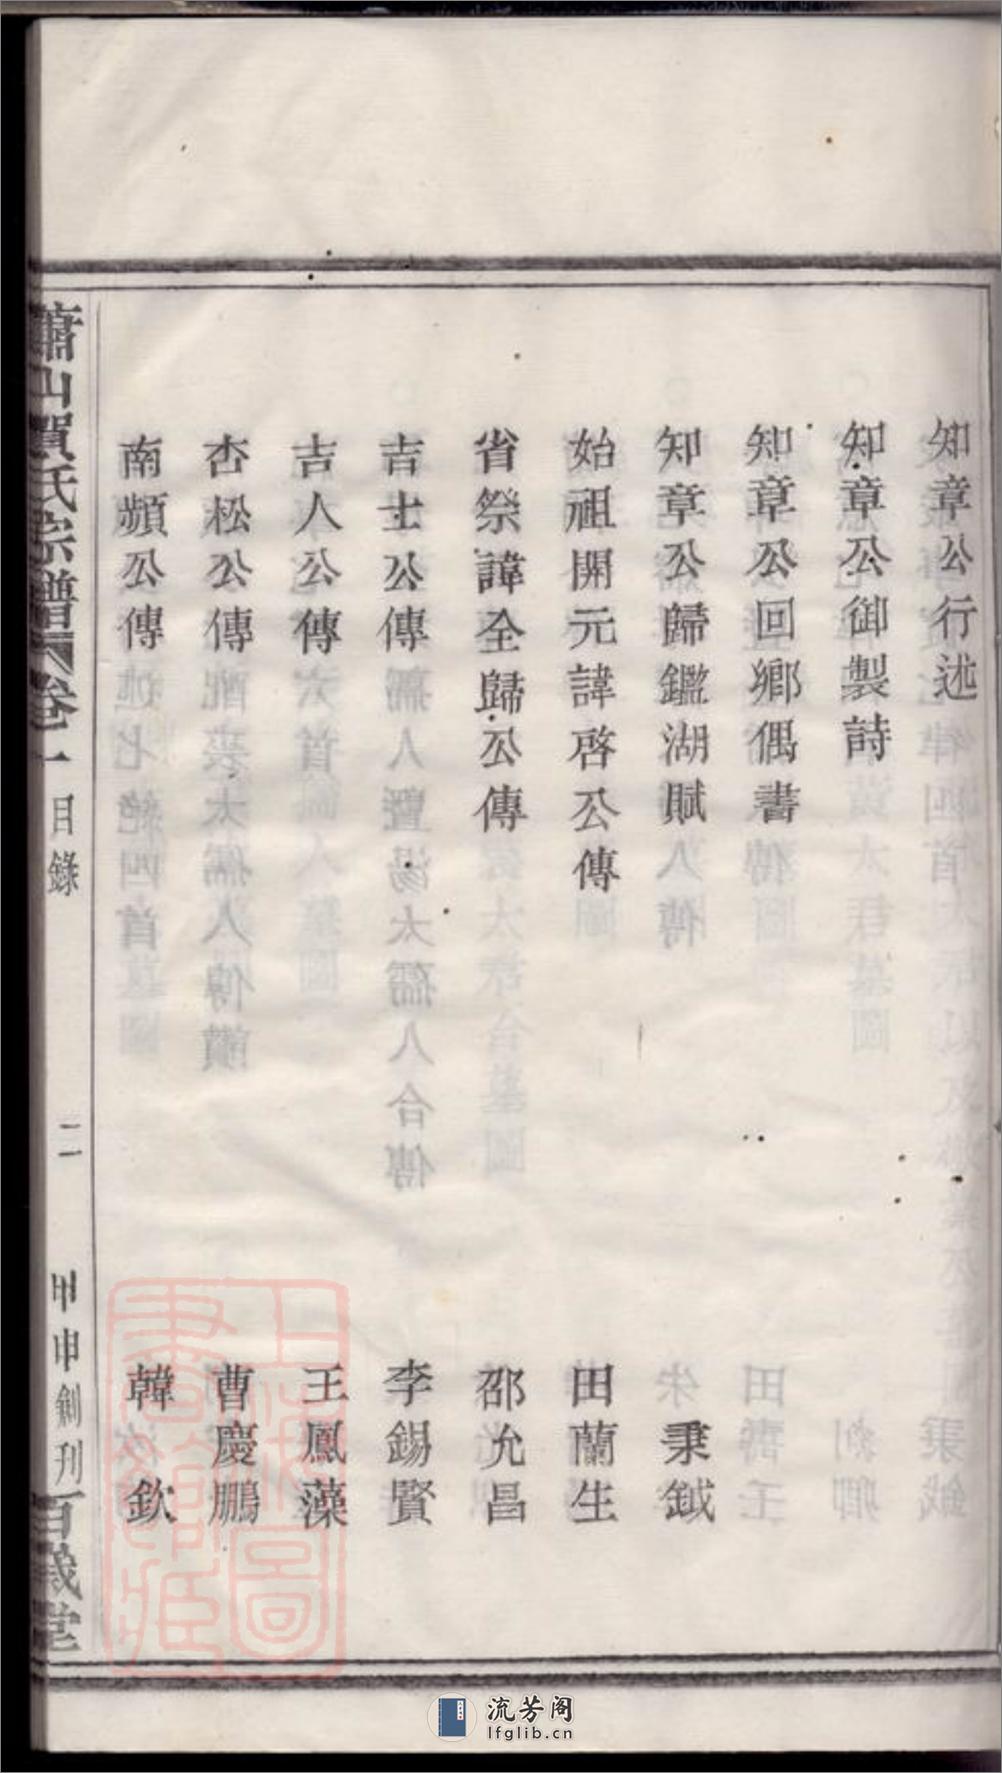 知章公行述
知章公御製詩
知章公回鄉偶書
知章公歸鑑湖賦 秉鉞
始祖開元諱啓公傳 田蘭生
省祭諱全歸公傳 邵允昌
吉士公傳 李錫賢
吉人公傳 王鳳藻
杏松公傳 曹慶鵬
南蘋公傳 韓欽
蕭山賀氏宗譜 卷一 目錄 二 甲申創刊 百義堂
上海圖書館藏
流芳阁
lfglib.cn